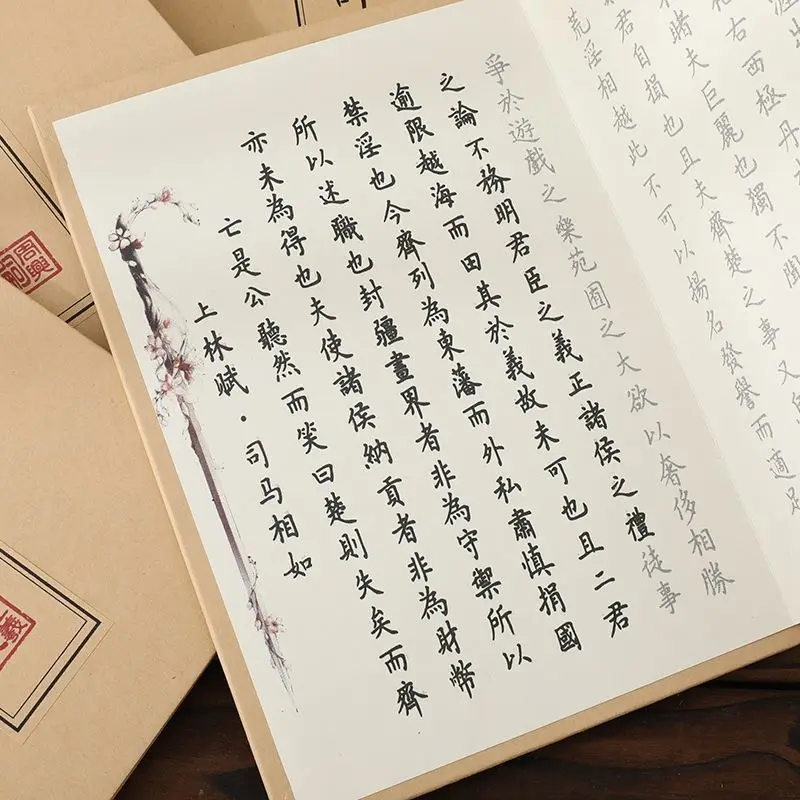 上林赋·司马相如
亡是公聽然而笑曰楚則失矣而齊
亦未為得也夫使諸侯納貢者非為財幣
所以述職也封疆畫界者非為守禦所以
禁淫也今齊列為東藩而外私肅慎捐國
逾限越海而田其於義故未可也且二君
之論不務明君臣之義正諸侯之禮徒事
爭於遊戲之樂苑囿之大欲以奢侈相勝
荒淫相越此不可以揚名發譽而適足
君自損也且夫齊楚之事又
睹夫巨麗也獨不聞
右西極丹